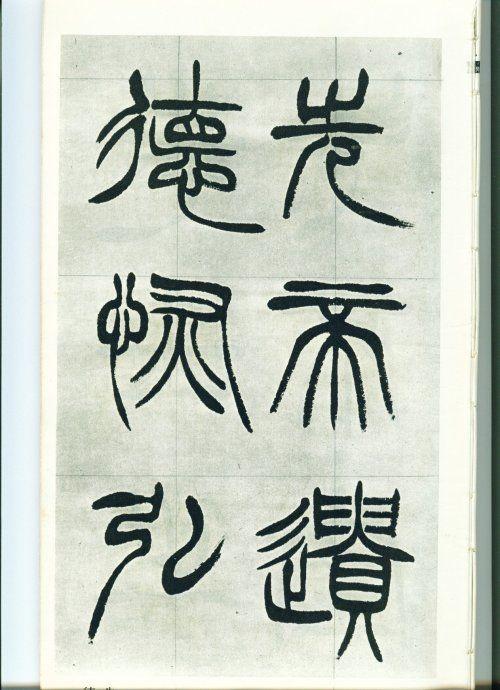 先帝遺
德恢弘